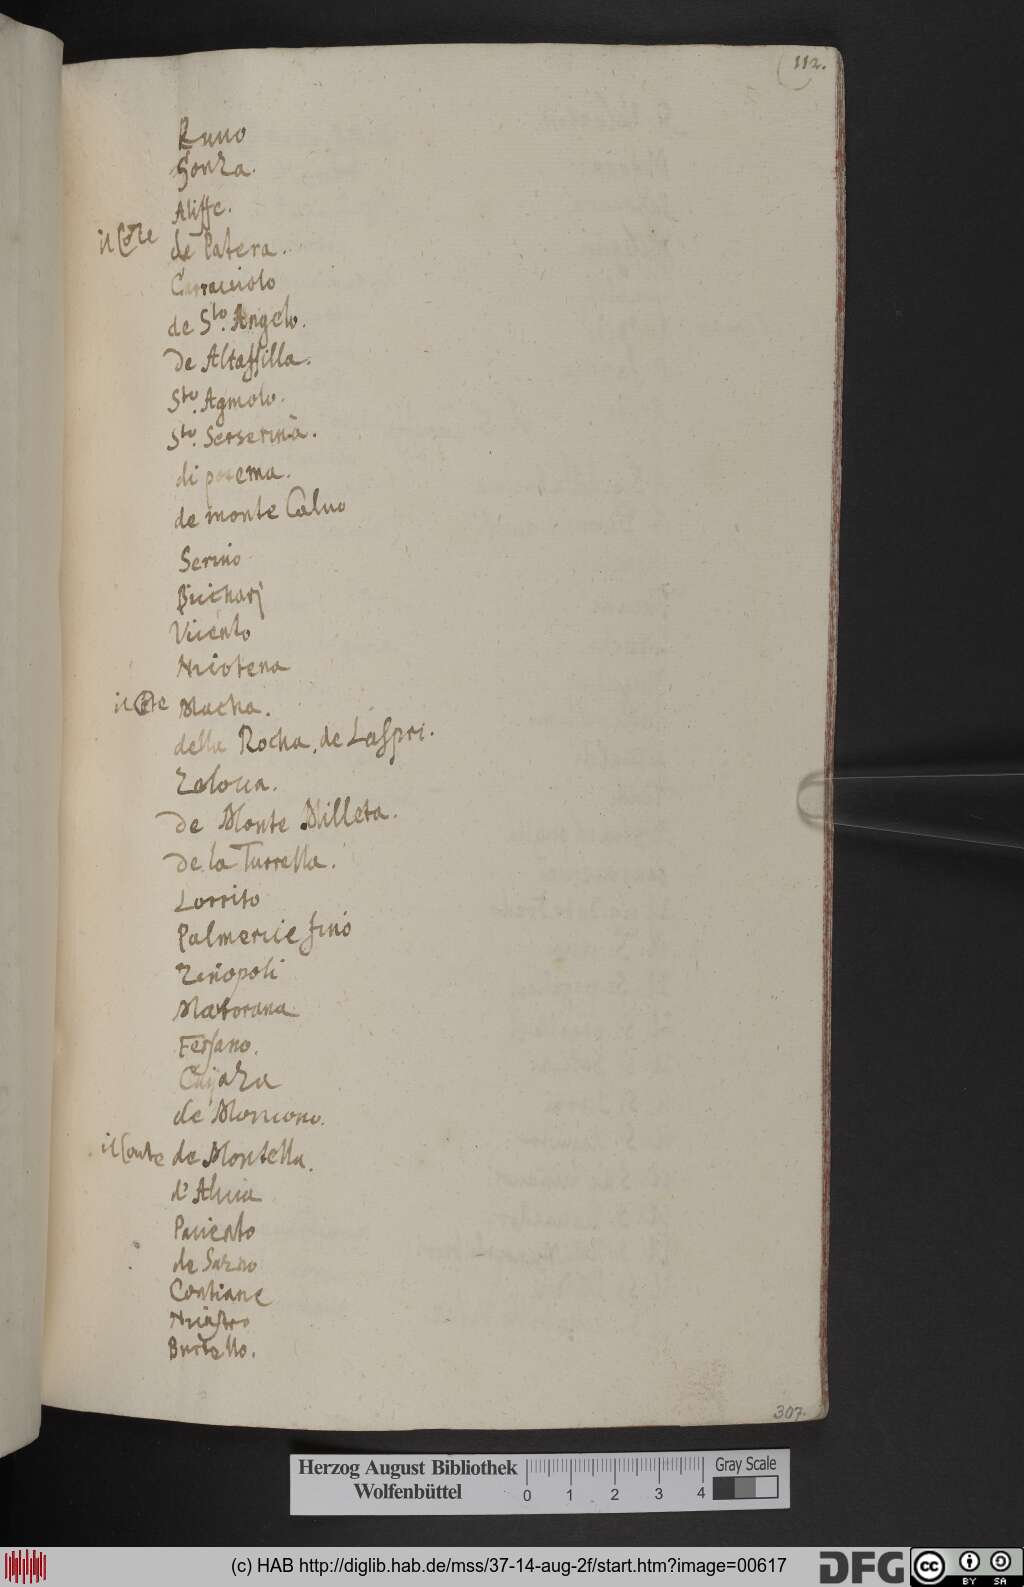 112.
Ruuo
Sonza.
Aliffe.
il Cōte de Patera.
Carraciolo
de Sto. Angelo.
De Altaffilla.
Sto. Agmolo.
Sto. Serserina.
di porema.
de monte Caluo
Serino
Buchari
Vicento
Nicotena
il Cōte Macha.
della Rocha, de Laspri.
Zalocca.
De Monte Milleta.
De la Turrella.
Lorrito
Palmericie fino
Zenopoli
Matorana
Fersano.
Caijaza
de Morcono.
il Conte de Montella.
d' Aluia
Paciento
de Sarno
Contiane
Nicastro
Burello.
307.
Herzog August Bibliothek
Wolfenbüttel
0 1 2 3 4
Gray Scale
(c) HAB http://diglib.hab.de/mss/37-14-aug-2f/start.htm?image=00617
DFG
CC BY SA